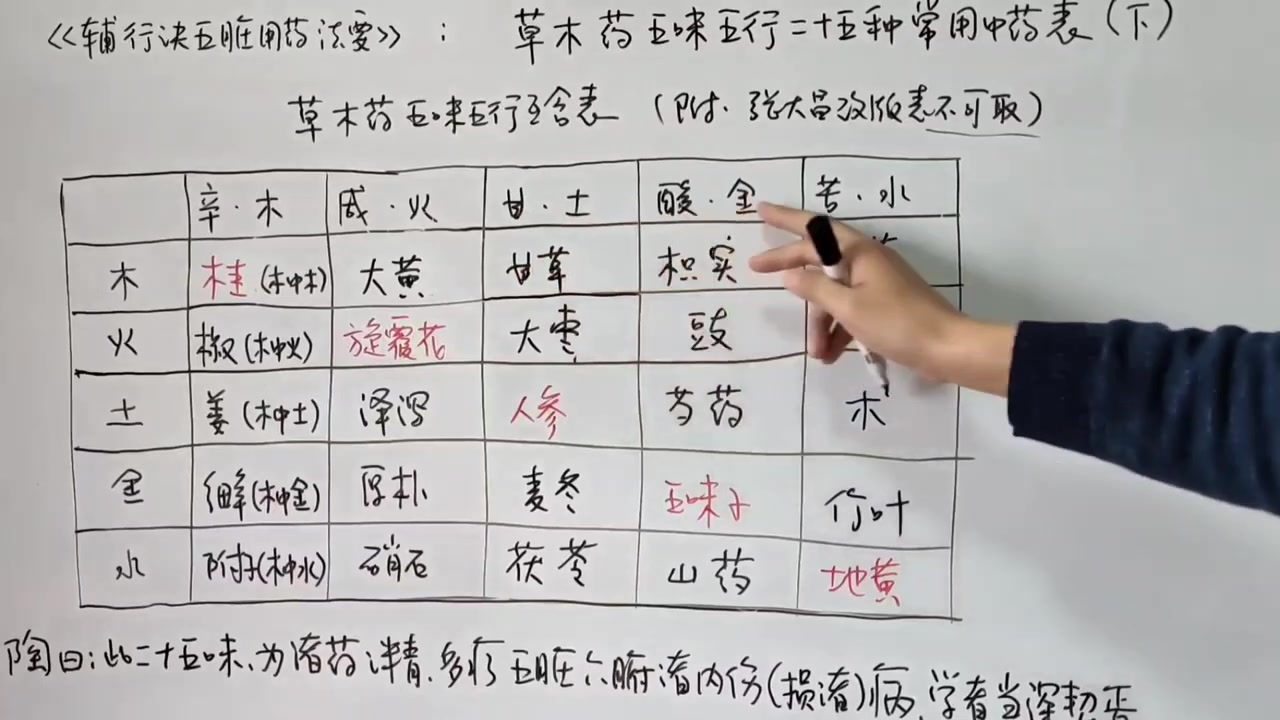 《辅行诀五脏用药法要》： 草木药五味五行二十五种常用中药表（下）
草木药五味五行互含表 （附·张大昌改版表不可取）
辛·木 咸·火 甘·土 酸·金 苦·水
木 桂（木中木） 大黄 甘草 枳实
火 椒（木中火） 旋覆花 大枣 豉
土 姜（木中土） 泽泻 人参 芍药 术
金 细辛（木中金） 厚朴 麦冬 五味子 竹叶
水 附子（木中水） 硝石 茯苓 山药 地黄
陶曰：此二十五味，为诸药之精，多疗五脏六腑诸内伤（损诸）病，学者当深契焉